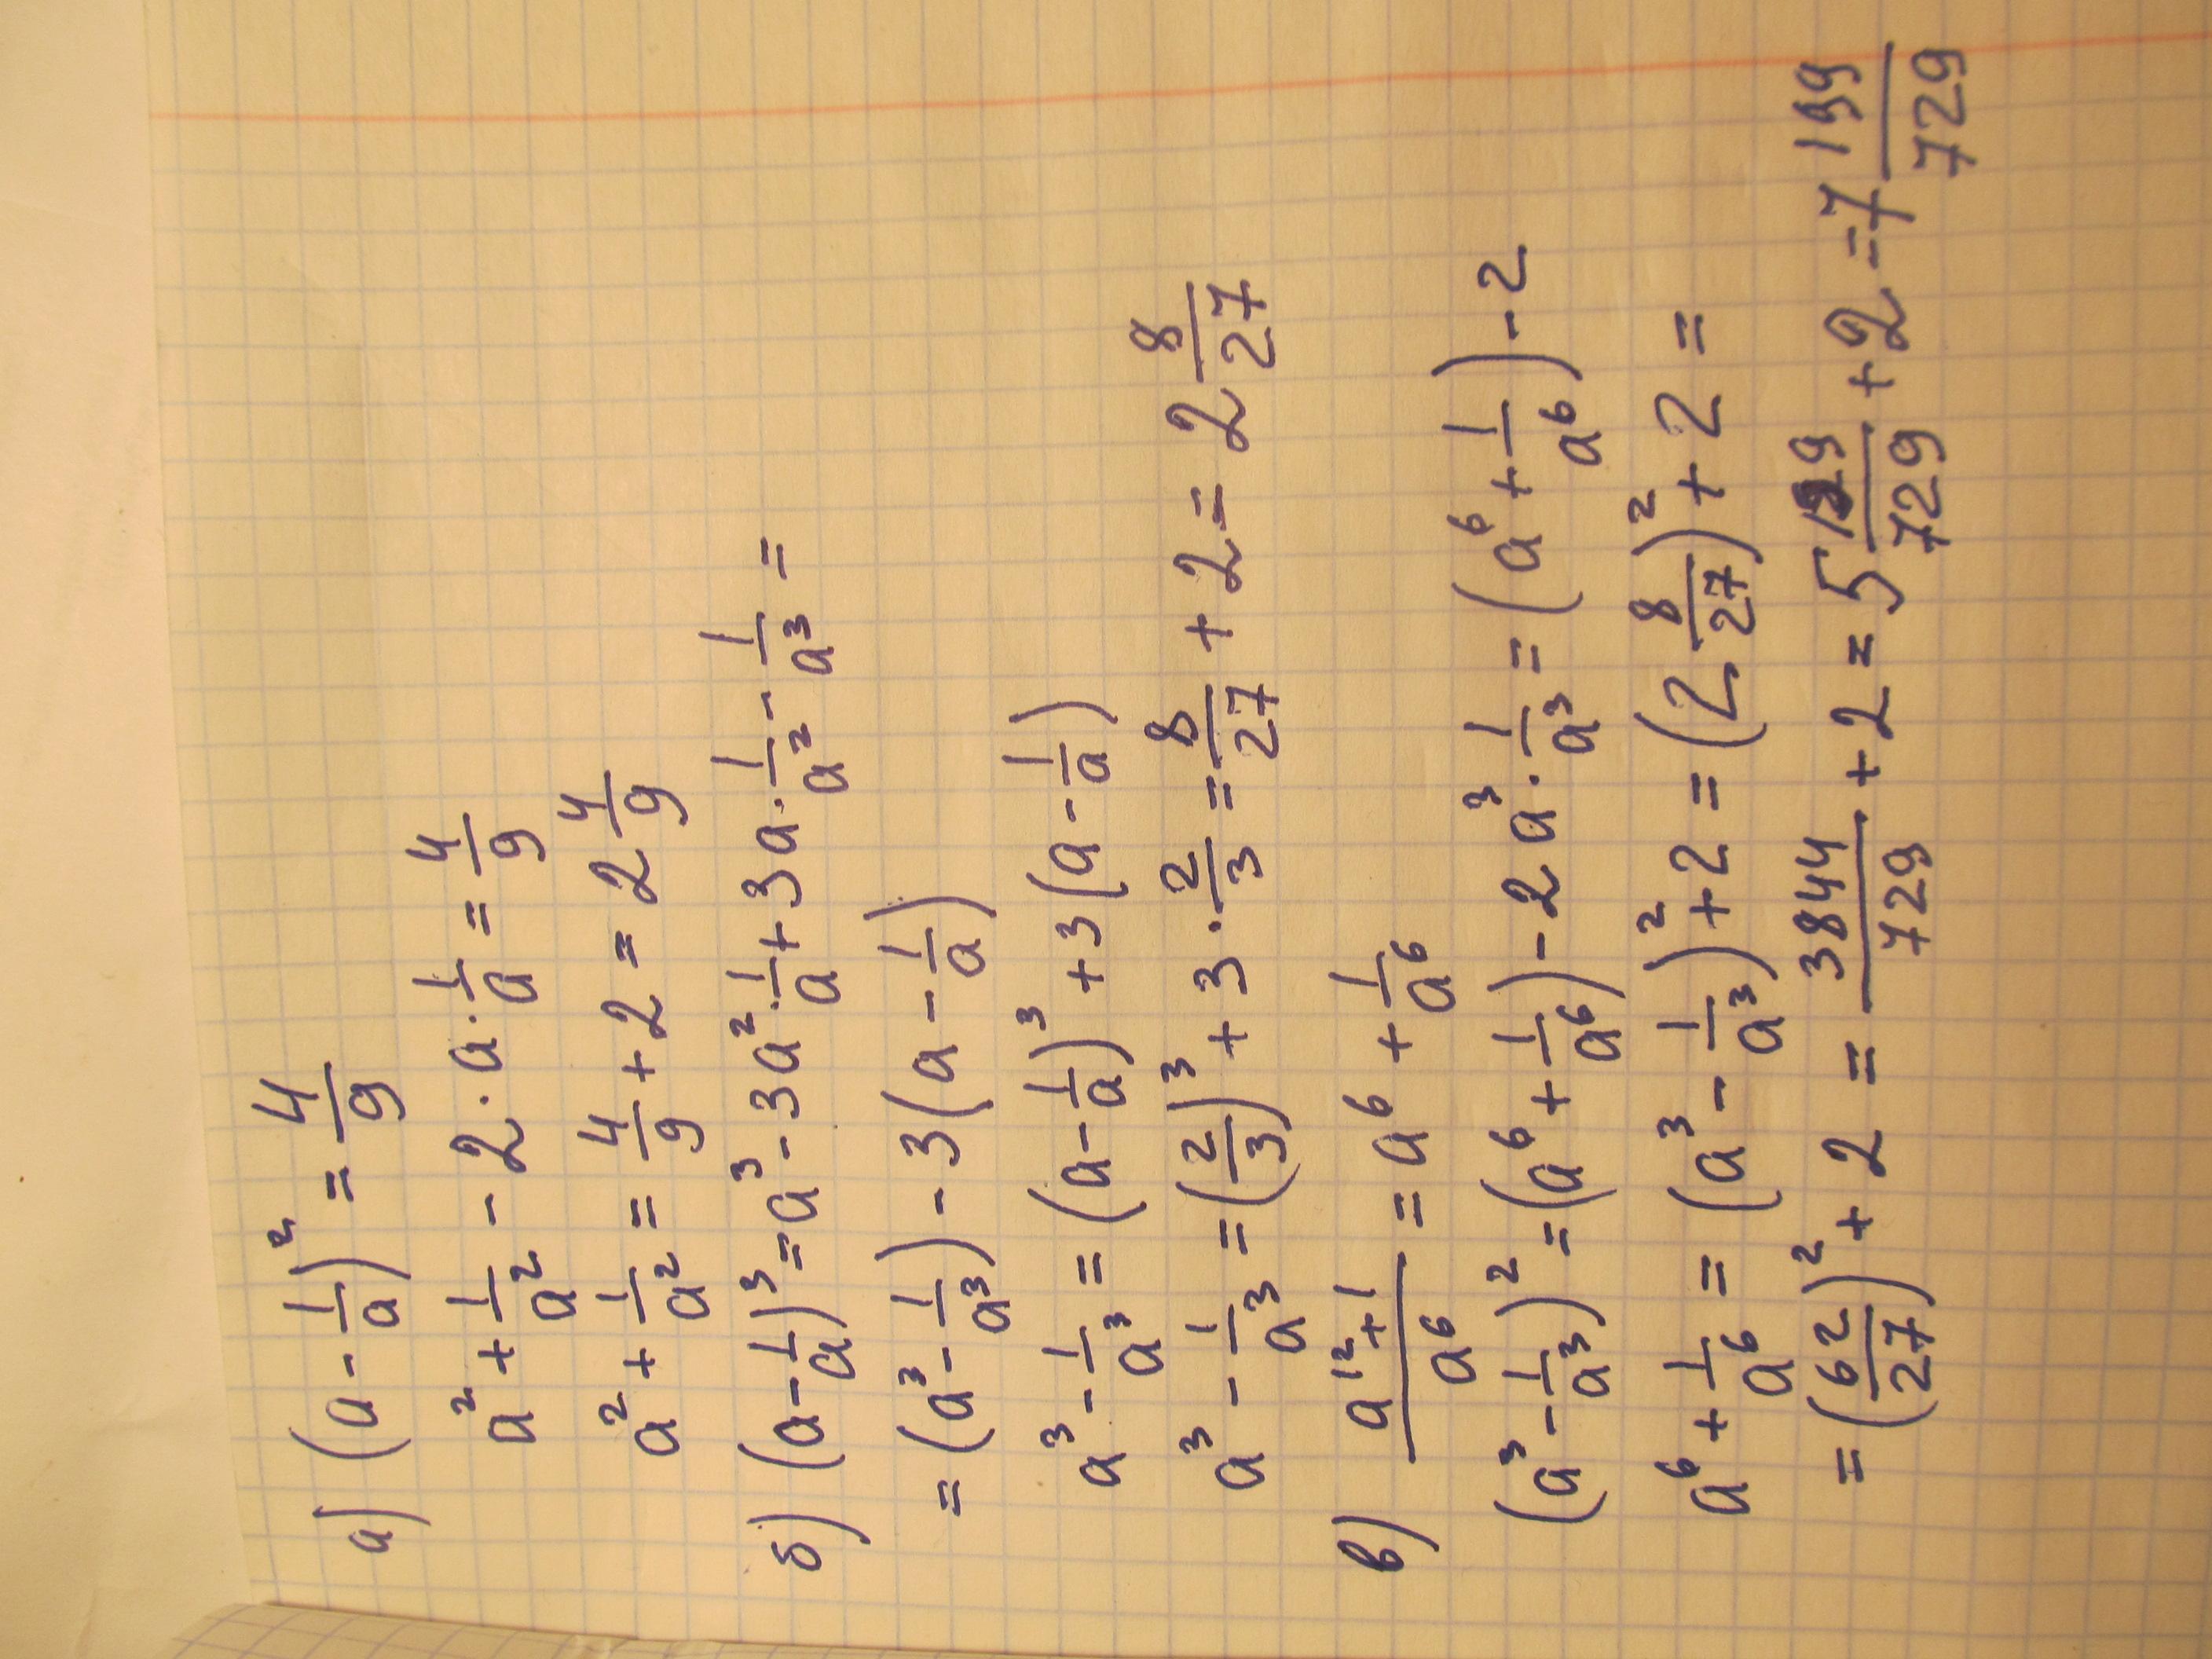 а) (a - 1/a)² = 4/9
a² + 1/a² - 2 · a · 1/a = 4/9
a² + 1/a² = 4/9 + 2 = 2 4/9
б) (a - 1/a)³ = a³ - 3a² · 1/a + 3a · 1/a² - 1/a³ =
= (a³ - 1/a³) - 3(a - 1/a)
a³ - 1/a³ = (a - 1/a)³ + 3(a - 1/a)
a³ - 1/a³ = (2/3)³ + 3 · 2/3 = 8/27 + 2 = 2 8/27
в) (a¹² + 1)/a⁶ = a⁶ + 1/a⁶
(a³ - 1/a³)² = (a⁶ + 1/a⁶) - 2a³ · 1/a³ = (a⁶ + 1/a⁶) - 2
a⁶ + 1/a⁶ = (a³ - 1/a³)² + 2 = (2 8/27)² + 2 =
= (62/27)² + 2 = 3844/729 + 2 = 5 199/729 + 2 = 7 199/729